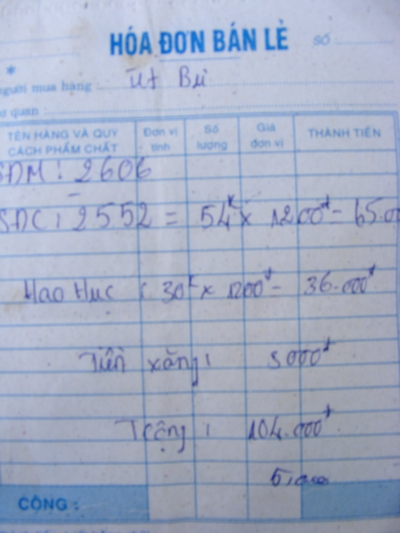 HÓA ĐƠN BÁN LẺ SỐ
gười mua hàng Út Bụi
ơ quan :
TÊN HÀNG VÀ QUY CÁCH PHẨM CHẤT Đơn vị tính Số lượng Giá đơn vị THÀNH TIỀN
SDM : 2606
SDC : 2552 = 54K x 1200đ - 65.0
Hao Hục ( 30K x 1200đ - 36.000đ
Tiền xăng : 3000đ
Trộng : 104.000đ
CỘNG :